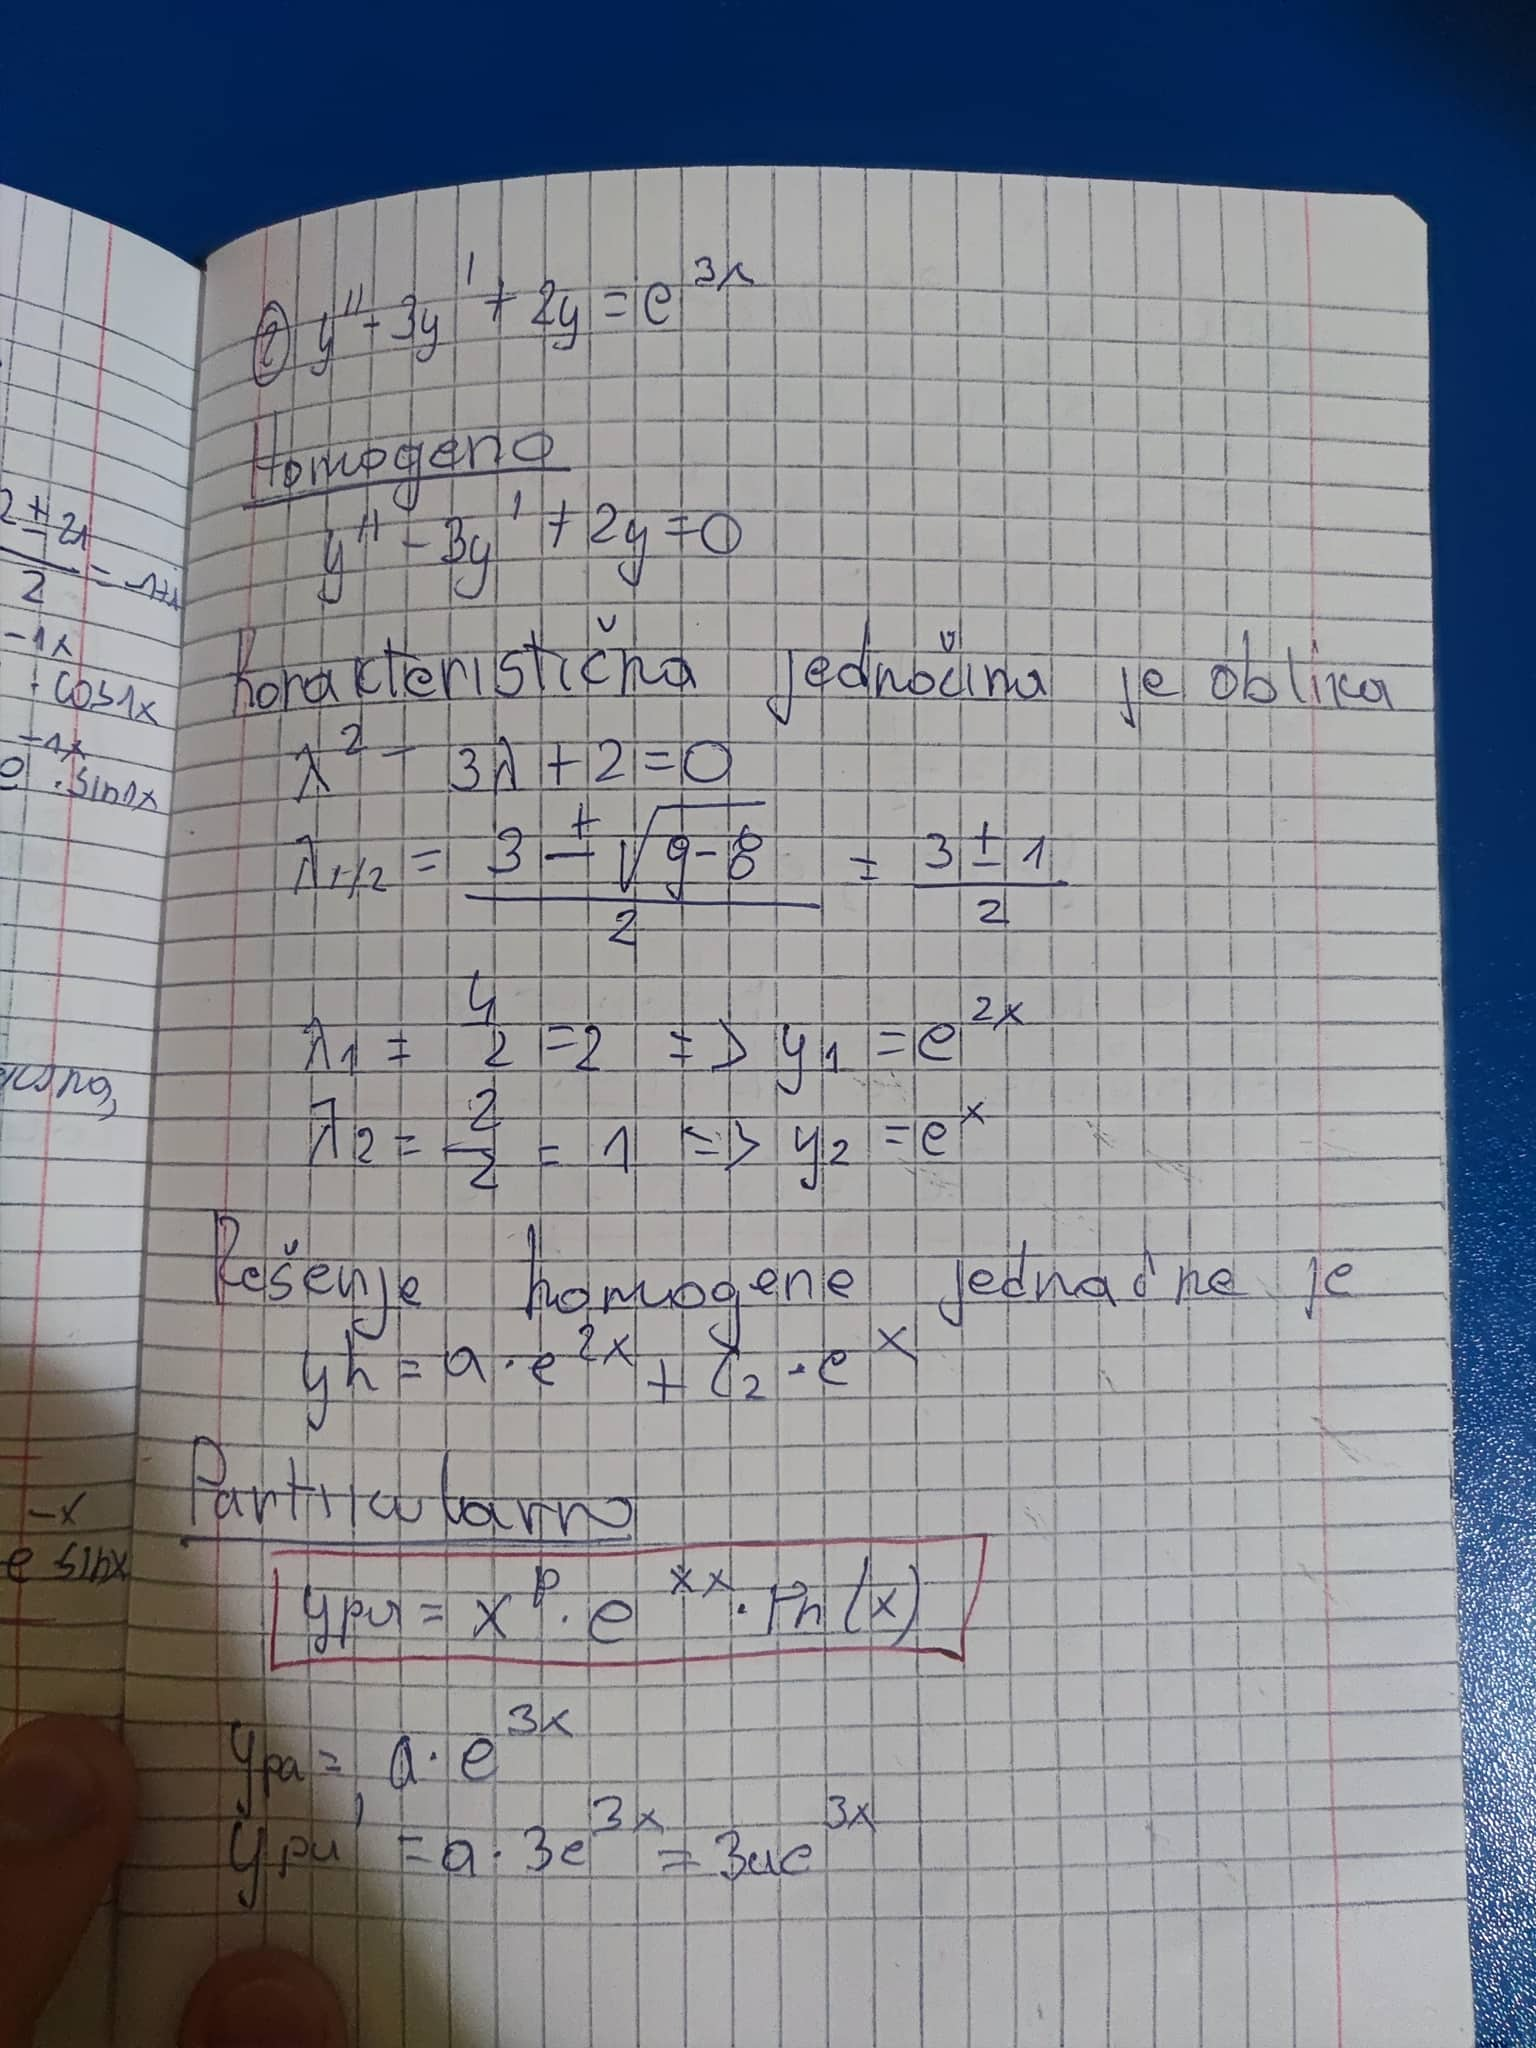 2+2i
2 = -1±i
-1x
+ cos1x
e^-1x · sin1x
-x
e sinx
② y'' - 3y' + 2y = e^3x
Homogeno
y'' - 3y' + 2y = 0
Karakteristična jednačina je oblika
λ² - 3λ + 2 = 0
λ1/2 = (3 ± √(9-8))/2 = (3 ± 1)/2
λ1 = 4/2 = 2 => y1 = e^2x
λ2 = 2/2 = 1 => y2 = e^x
Rešenje homogene jednačne je
yh = a · e^2x + C2 · e^x
Partikularno
ypa = x^p · e^xx · Pn(x)
ypa = a · e^3x
ypa' = a · 3e^3x = 3ae^3x